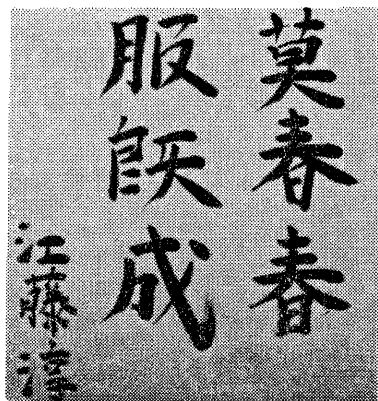 莫春春
服既成
江藤淳